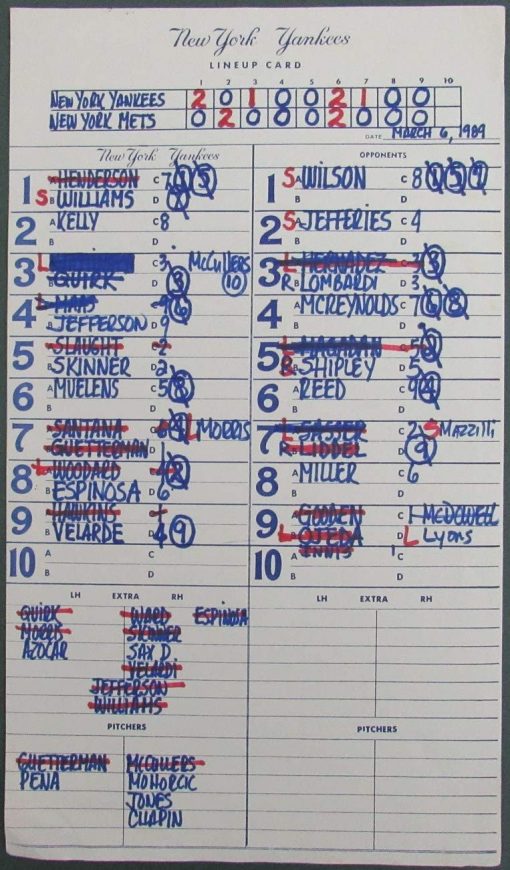 New York Yankees
LINEUP CARD
1 2 3 4 5 6 7 8 9 10
NEW YORK YANKEES 2 0 1 0 0 2 1 0 0
NEW YORK METS 0 2 0 0 0 2 0 0 0
DATE MARCH 6, 1989
New York Yankees OPPONENTS
1 A HENDERSON C 7
S B WILLIAMS D
1 S A WILSON C 8
B D
2 A KELLY C 8
B D
2 S A JEFFERIES C 4
B D
3 L C 3 McCULLERS
B QUIRK D 10
3 L A HERNADEZ C 3
R B LOMBARDI D 3
4 L MAAS C 9
B JEFFERSON D 9
4 A MCREYNOLDS C 7 6 8
B D
5 A SLAUGHT C 2
B SKINNER D 2
5 L MAGADAN C 5
R B SHIPLEY D 5
6 A MUELENS C 5 8
B D
6 A REED C 9
B D
7 A SANTANA C 6 L MORRIS
B GUETTERMAN D 1
7 L SASSER C 2 S MAZZILLI
R LIDDEL D 9
8 L A WOODARD C 4
B ESPINOSA D 6
8 A MILLER C 6
B D
9 A HAWKINS C 1
B VELARDE D 4 9
9 A GOODEN C 1 McDOWELL
L OJEDA D L LYONS
10 A C
B D
10 A INNIS C 1
B D
LH EXTRA RH
LH EXTRA RH
QUIRK WARD ESPINOSA
MORRIS SKINNER
AZOCAR SAX D
VELARDI
JEFFERSON
WILLIAMS
PITCHERS
PITCHERS
GUETTERMAN MCCULLERS
PENA MOHORCIC
JONES
CHAPIN